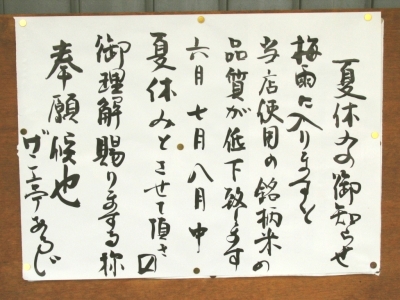 夏休みの御知らせ
梅雨に入りますと
当店使用の銘柄米の
品質が低下致します
六月七月八月中
夏休みとさせて頂き〼
御理解賜ります様
奉願候也
げこ亭あるじ